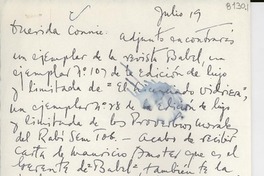 Julio 19
81301
Querida Connie: adjunto encontrarás
un ejemplar de la revista Babel, un
ejemplar nº 107 de la edición de lujo
y limitada de "El Licenciado Vidriera",
un ejemplar nº 78 de la edición de lujo
y limitada de los Proverbios morales
del Rabí Sem Tob. — Acabo de recibir
carta de Mauricio Amster que es el
gerente de "Babel" también te la